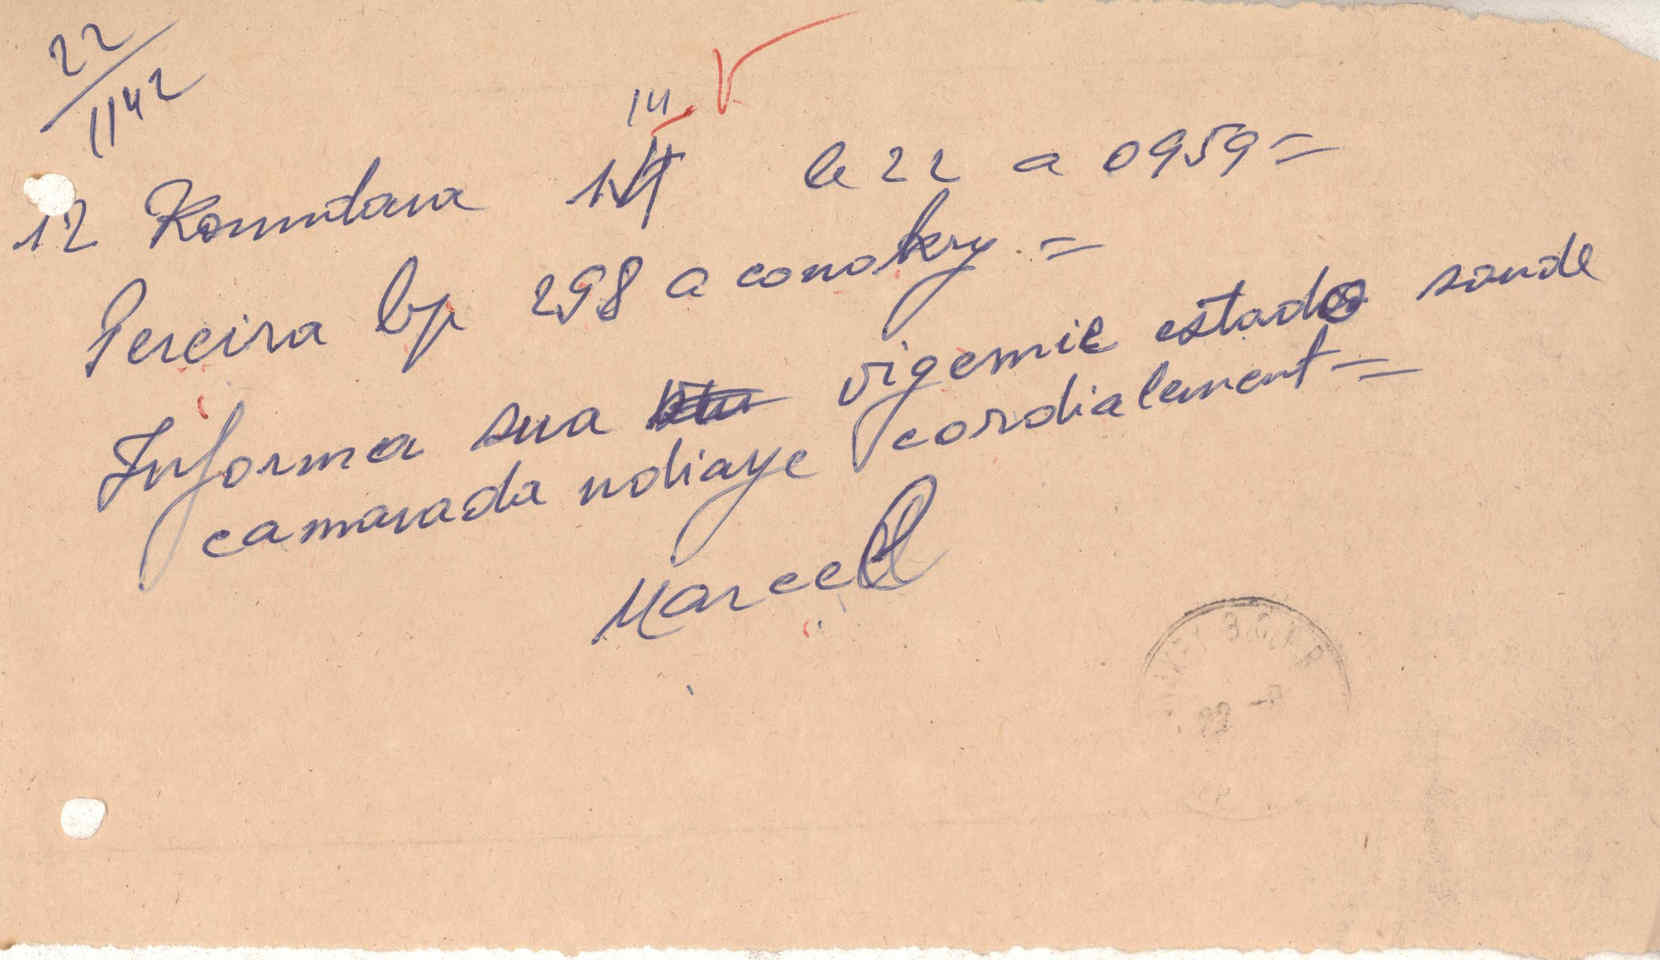 22
1142
14
12 Koundara 14 le 22 a 0959=
Pereira bp 298 a conakry =
Informa sua vigemie estado saude
camarada ndiaye cordialement =
Marcel
22